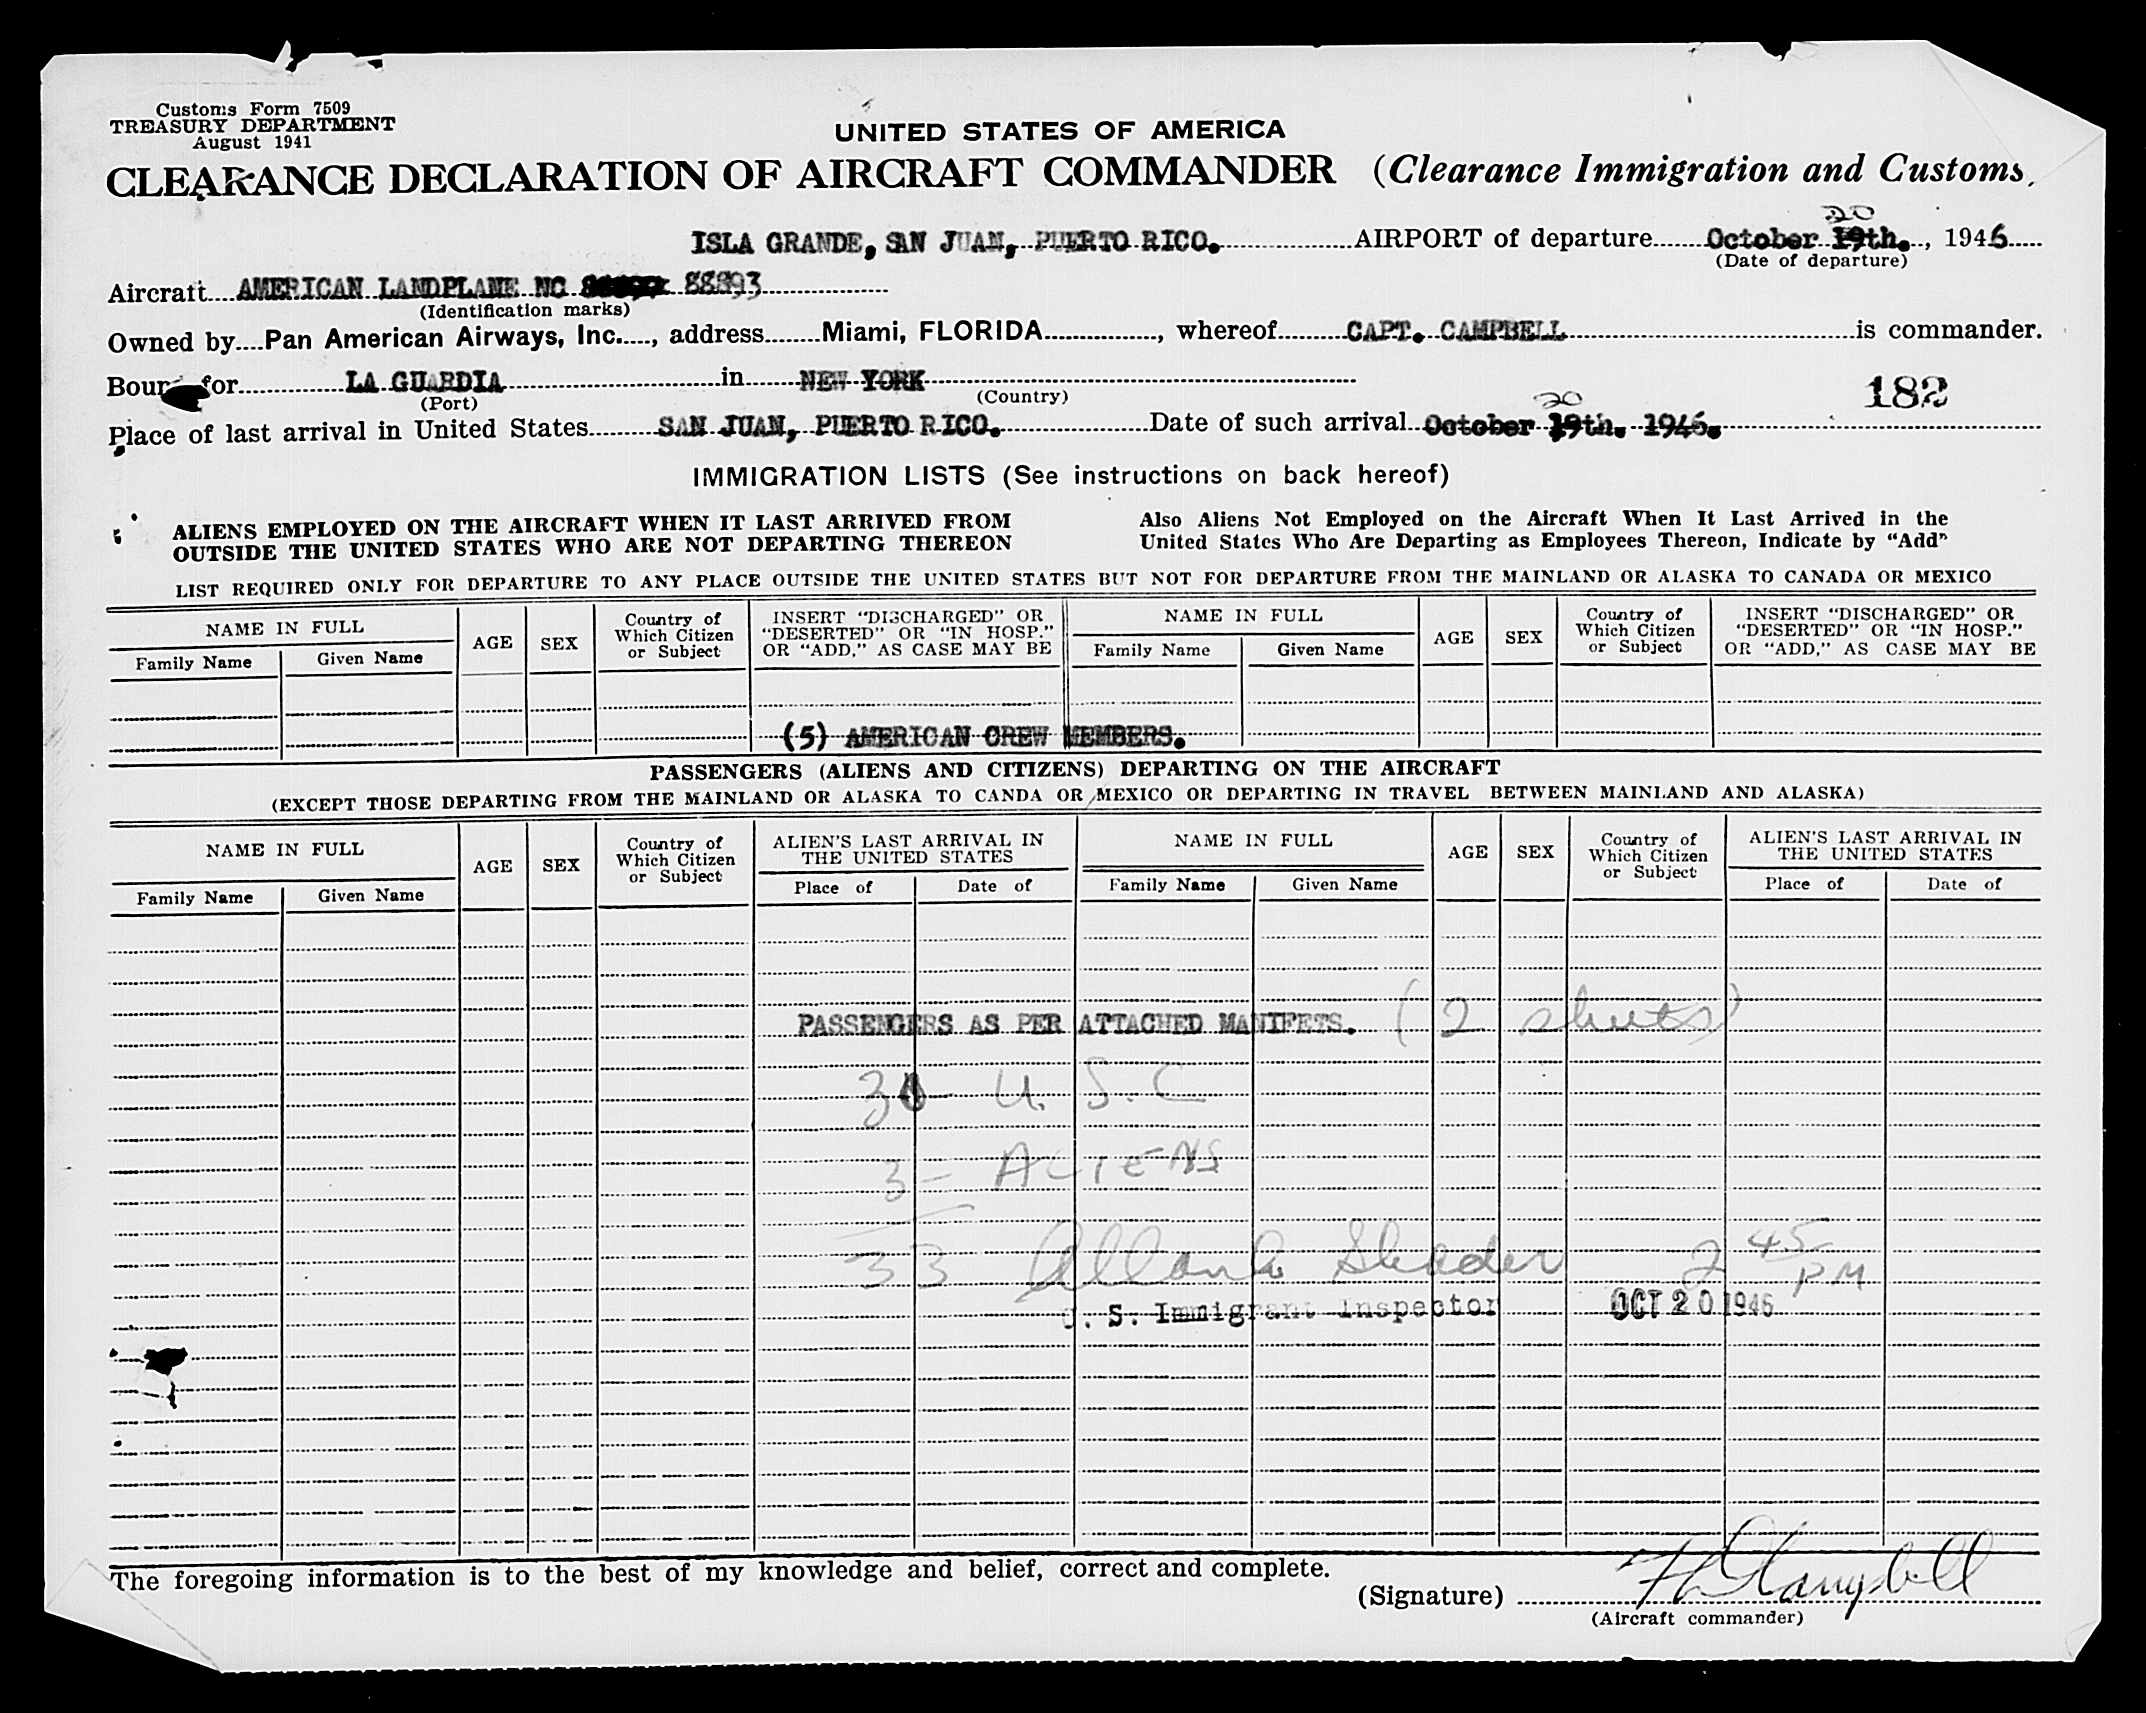 Customs Form 7509
TREASURY DEPARTMENT
August 1941
UNITED STATES OF AMERICA
CLEARANCE DECLARATION OF AIRCRAFT COMMANDER (Clearance Immigration and Customs
20
ISLA GRANDE, SAN JUAN, PUERTO RICO. AIRPORT of departure October 19th., 1946
(Date of departure)
Aircraft AMERICAN LANDPLANE NC 88893
(Identification marks)
Owned by Pan American Airways, Inc., address Miami, FLORIDA, whereof CAPT. CAMPBELL is commander.
Bound for LA GUARDIA in NEW YORK
(Port) (Country) 182
20
Place of last arrival in United States SAN JUAN, PUERTO RICO. Date of such arrival October 19th. 1946.
IMMIGRATION LISTS (See instructions on back hereof)
ALIENS EMPLOYED ON THE AIRCRAFT WHEN IT LAST ARRIVED FROM
OUTSIDE THE UNITED STATES WHO ARE NOT DEPARTING THEREON
Also Aliens Not Employed on the Aircraft When It Last Arrived in the
United States Who Are Departing as Employees Thereon, Indicate by “Add”
LIST REQUIRED ONLY FOR DEPARTURE TO ANY PLACE OUTSIDE THE UNITED STATES BUT NOT FOR DEPARTURE FROM THE MAINLAND OR ALASKA TO CANADA OR MEXICO
NAME IN FULL
Family Name Given Name
AGE
SEX
Country of
Which Citizen
or Subject
INSERT “DISCHARGED” OR
“DESERTED” OR “IN HOSP.”
OR “ADD,” AS CASE MAY BE
NAME IN FULL
Family Name Given Name
AGE
SEX
Country of
Which Citizen
or Subject
INSERT “DISCHARGED” OR
“DESERTED” OR “IN HOSP.”
OR “ADD,” AS CASE MAY BE
(5) AMERICAN CREW MEMBERS.
PASSENGERS (ALIENS AND CITIZENS) DEPARTING ON THE AIRCRAFT
(EXCEPT THOSE DEPARTING FROM THE MAINLAND OR ALASKA TO CANDA OR MEXICO OR DEPARTING IN TRAVEL BETWEEN MAINLAND AND ALASKA)
NAME IN FULL
Family Name Given Name
AGE
SEX
Country of
Which Citizen
or Subject
ALIEN'S LAST ARRIVAL IN
THE UNITED STATES
Place of Date of
NAME IN FULL
Family Name Given Name
AGE
SEX
Country of
Which Citizen
or Subject
ALIEN'S LAST ARRIVAL IN
THE UNITED STATES
Place of Date of
PASSENGERS AS PER ATTACHED MANIFETS. (2 sheets)
30 - U.S.C
3 - ALIENS
33 2 45 PM
U. S. Immigrant Inspector OCT 20 1946
The foregoing information is to the best of my knowledge and belief, correct and complete.
(Signature) Campbell
(Aircraft commander)